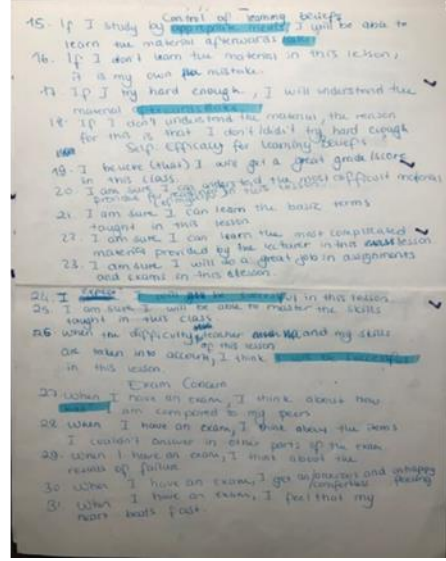 Control of learning beliefs
15. If I study by appropriate means, I will be able to
learn the material afterwards
16. If I don't learn the material in this lesson,
it is my own mistake.
17. If I try hard enough, I will understand the
material
18. If I don't understand the material, the reason
for this is that I don't/didn't try hard enough
Self Efficacy for Learning Beliefs
19. I believe (that) I will get a great grade/score
in this class.
20. I am sure I can understand the most difficult materials
in this lesson
21. I am sure I can learn the basic terms
taught in this lesson
22. I am sure I can learn the most complicated
materials provided by the lecturer in this lesson
23. I am sure I will do a great job in assignments
and exams in this lesson.
24. I expect I will be successful in this lesson
25. I am sure I will be able to master the skills
taught in this class
26. When the difficulty, teacher and my skills
of this lesson
are taken into account, I think I will be successful
in this lesson
Exam Concern
27. When I have an exam, I think about how
I am compared to my peers
28. When I have an exam, I think about the items
I couldn't answer in other parts of the exam
29. When I have an exam, I think about the
results of failure
30. When I have an exam, I get an unhappy
feeling
31. When I have an exam, I feel that my
heart beats fast.